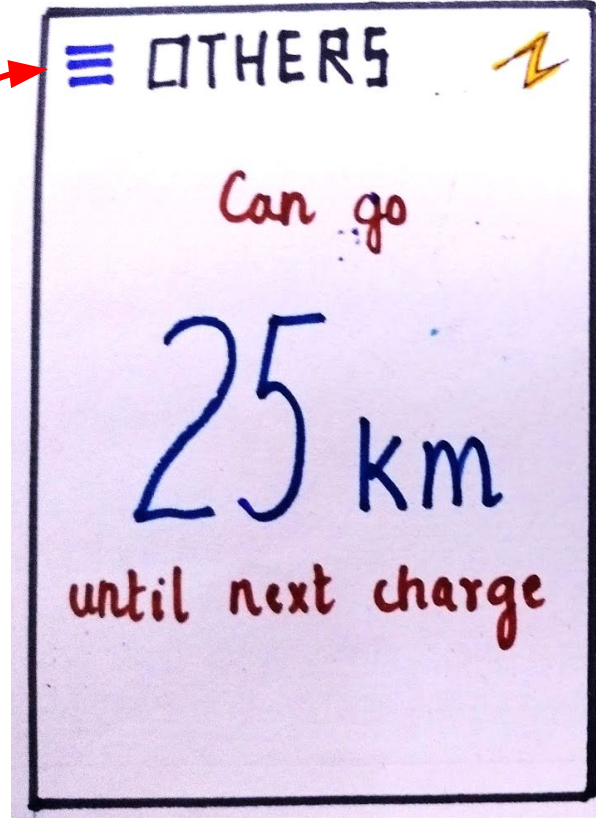 OTHERS
Can go
25 km
until next charge